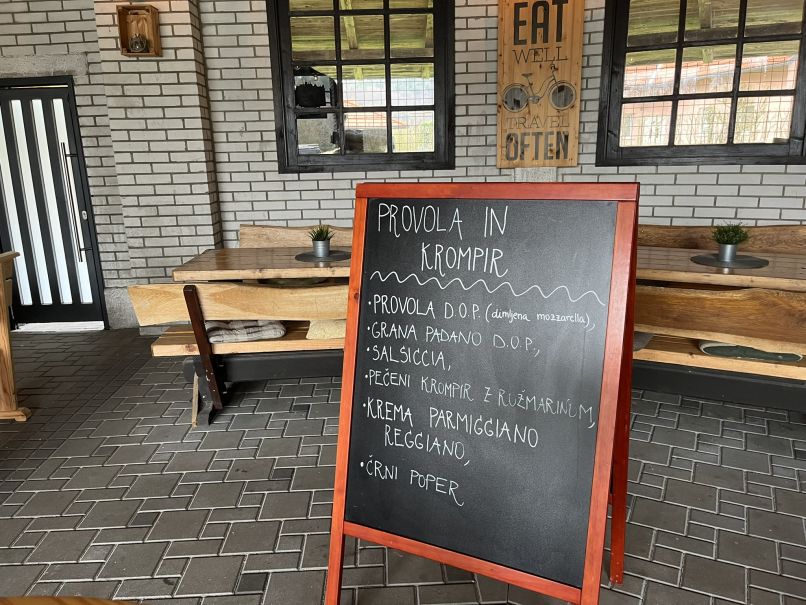 EAT
WELL
TRAVEL
OFTEN
PROVOLA IN
KROMPIR
• PROVOLA D.O.P. (dimljena mozzarella),
• GRANA PADANO D.O.P.,
• SALSICCIA,
• PEČENI KROMPIR Z RUŽMARINUM,
• KREMA PARMIGGIANO
REGGIANO,
• ČRNI POPER